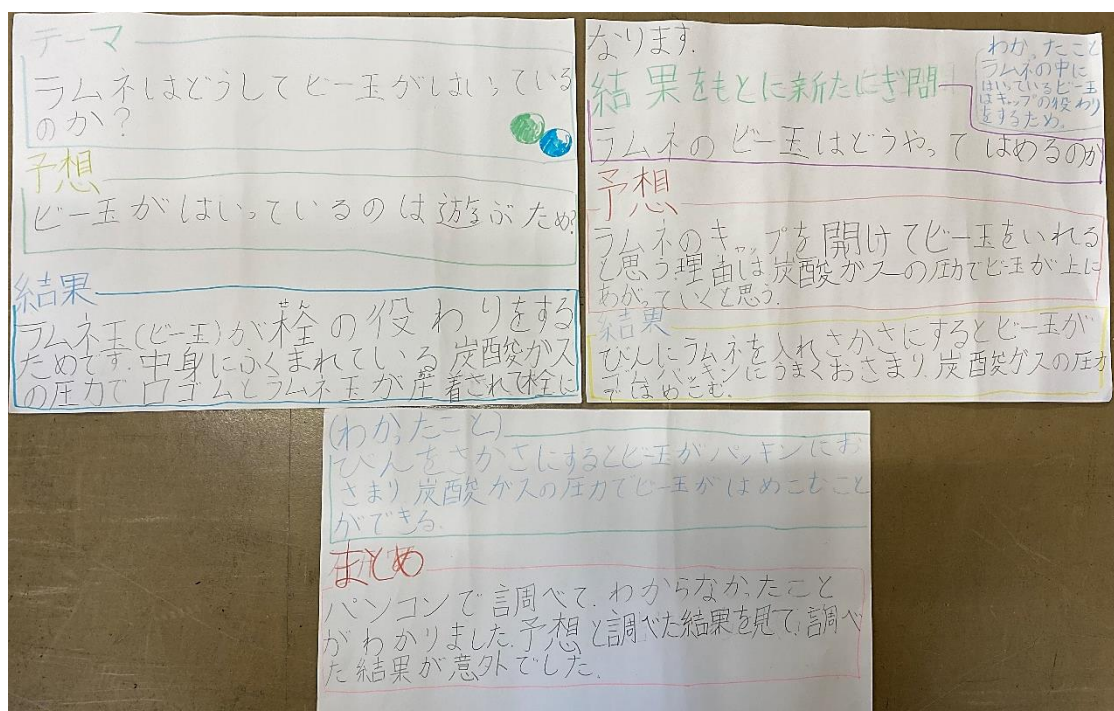 テーマ
ラムネはどうしてビー玉がはいっている
のか?
予想
ビー玉がはいっているのは遊ぶため?
結果
ラムネ玉(ビー玉)が栓の役わりをする
ためです.中身にふくまれている炭酸ガス
の圧力で口ゴムとラムネ玉が産着されて栓に
なります.
結果をもとに新たにぎ問
わかったこと
ラムネの中に
はいっているビー玉
はキャップの役わり
をするため.
ラムネのビー玉はどうやってはめるのか
予想
ラムネのキャップを開けてビー玉をいれる
と思う.理由は炭酸ガスの圧力でビー玉が上に
あがっていくと思う.
結果
びんにラムネを入れさかさにするとビー玉が
ゴムパッキンにうまくおさまり,炭酸ガスの圧力
ではめこむ.
(わかったこと)
びんをさかさにするとビー玉がパッキンにお
さまり,炭酸ガスの圧力でビー玉がはめこむこと
ができる.
まとめ
パソコンで調べて,わからなかったこと
がわかりました.予想と調べた結果を見て,調べ
た結果が意外でした.